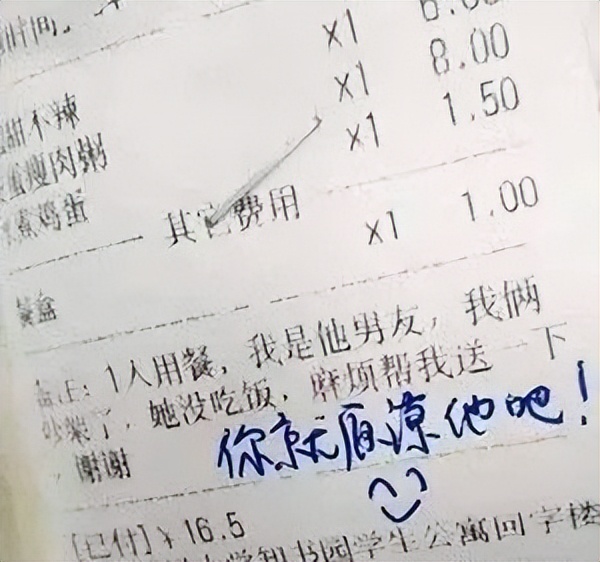 时间:
x1 6.00
甜不辣 x1 8.00
瘦肉粥 x1 1.50
煮鸡蛋
其它费用
餐盒 x1 1.00
备注: 1人用餐, 我是他男友, 我俩
吵架了, 她没吃饭, 麻烦帮我送一下
, 谢谢
你就原谅他吧!
[已付] ¥ 16.5
大学知书园学生公寓回字楼